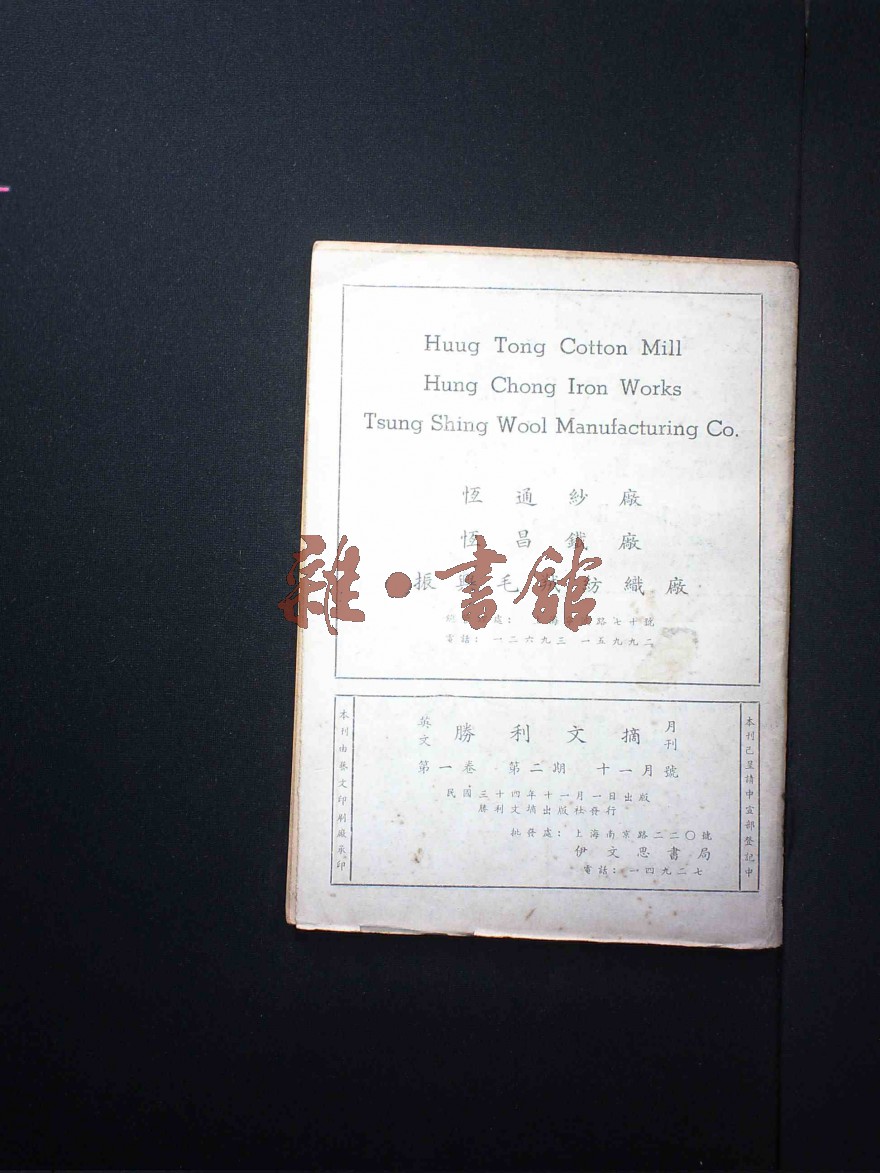 Huug Tong Cotton Mill
Hung Chong Iron Works
Tsung Shing Wool Manufacturing Co.
恆通紗廠
恆昌鐵廠
振興毛絨紡織廠
雜·書館
處：海路七十號
電話：一二六九三 一五九九二
英文 勝利文摘 月刊
第一卷 第二期 十一月號
民國三十四年十一月一日出版
勝利文摘出版社發行
批發處：上海南京路二二〇號
伊文思書局
電話：一四九二七
本刊已呈請中宣部登記中
本刊由藝文印刷廠承印